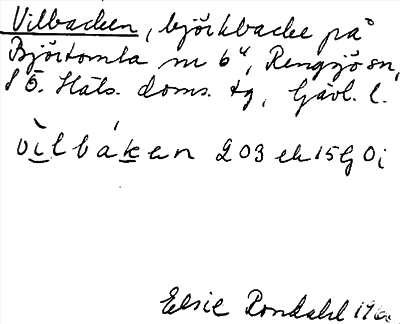 Vilbacken, björkbacke på
Björtomta nr 6", Rengsjö sn,
S Ö. Häls. doms. tg, Gävl. l.
vìlbáken 203 ek 15G Oi
Elsie Rondahl